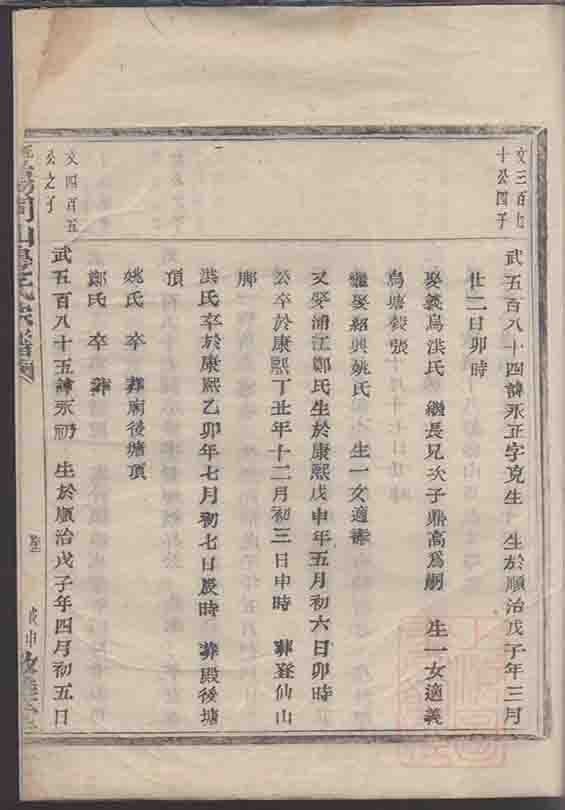 文三百七
十公四子
武五百八十四諱永正字克生 生於順治戊子年三月
廿二日卯時
娶義烏洪氏 繼長兄次子鼎高爲嗣 生一女適義
烏塘 張
繼娶紹興姚氏 生一女適
又娶浦江鄭氏生於康熙戊申年五月初六日卯時
公卒於康熙丁丑年十二月初三日申時 葬登仙山
脚
洪氏卒於康熙乙卯年七月初七日辰時 葬殿後塘
頂
姚氏 卒 葬廟後塘頂
鄭氏 卒 葬
文四百五
公之子
武五百八十五諱永 生於順治戊子年四月初五日